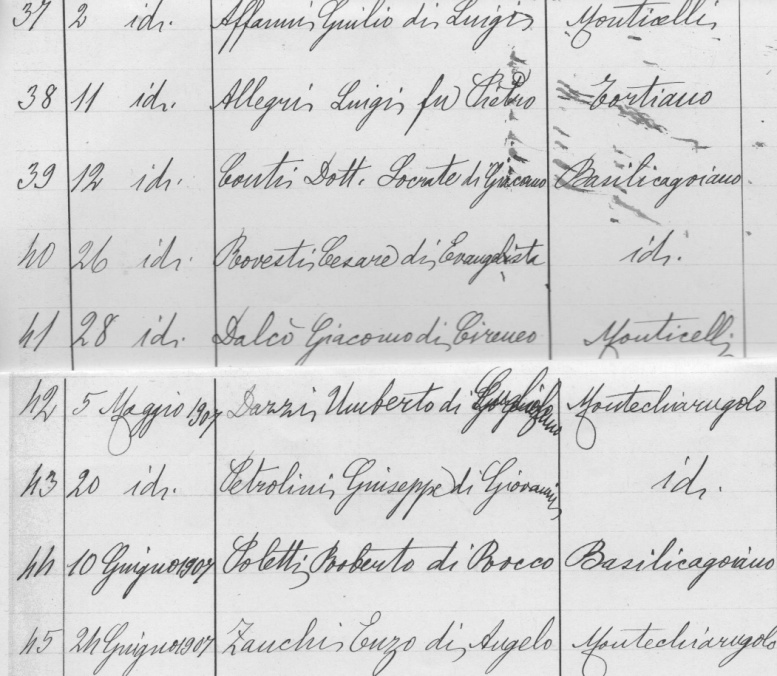 37 2 id. Affanni Giulio di Luigi Monticelli
38 11 id. Allegri Luigi fu Pietro Tortiano
39 12 id. Conti Dott. Socrate di Giacomo Basilicagoiano
40 26 id. Rovesti Cesare di Evangelista id.
41 28 id. Dalcò Giacomo di Cireneo Monticelli
42 5 Maggio 1907 Dazzi Umberto di Montechiarugolo
43 20 id. Petrolini Giuseppe di Giovanni id.
44 10 Giugno 1907 Poletti Roberto di Rocco Basilicagoiano
45 24 Giugno 1907 Zanchi Enzo di Angelo Montechiarugolo